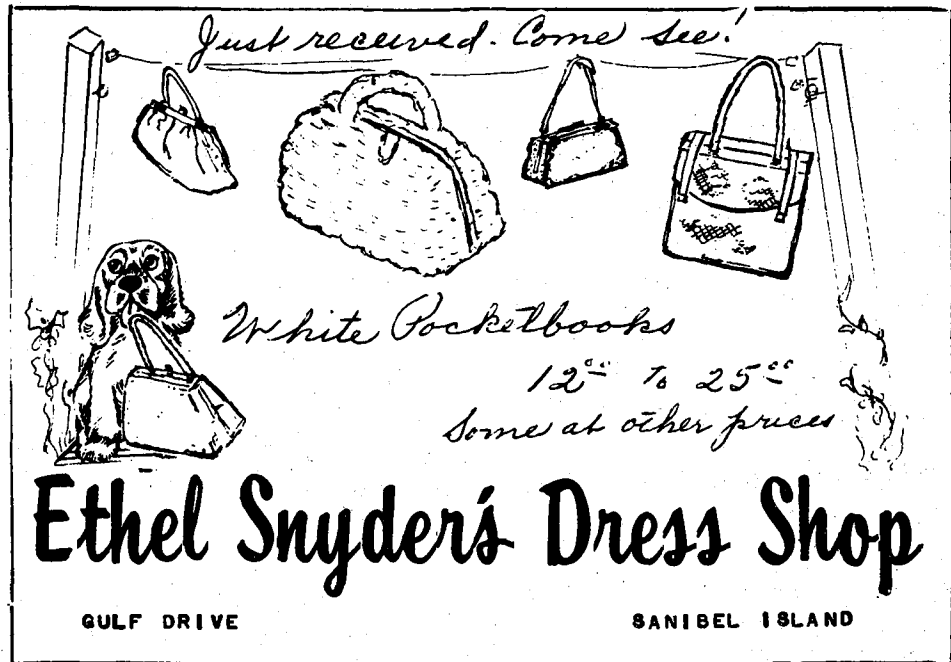 Just received. Come see!
White Pocketbooks
12⁰⁰ to 25⁰⁰
Some at other prices
Ethel Snyder's Dress Shop
GULF DRIVE SANIBEL ISLAND